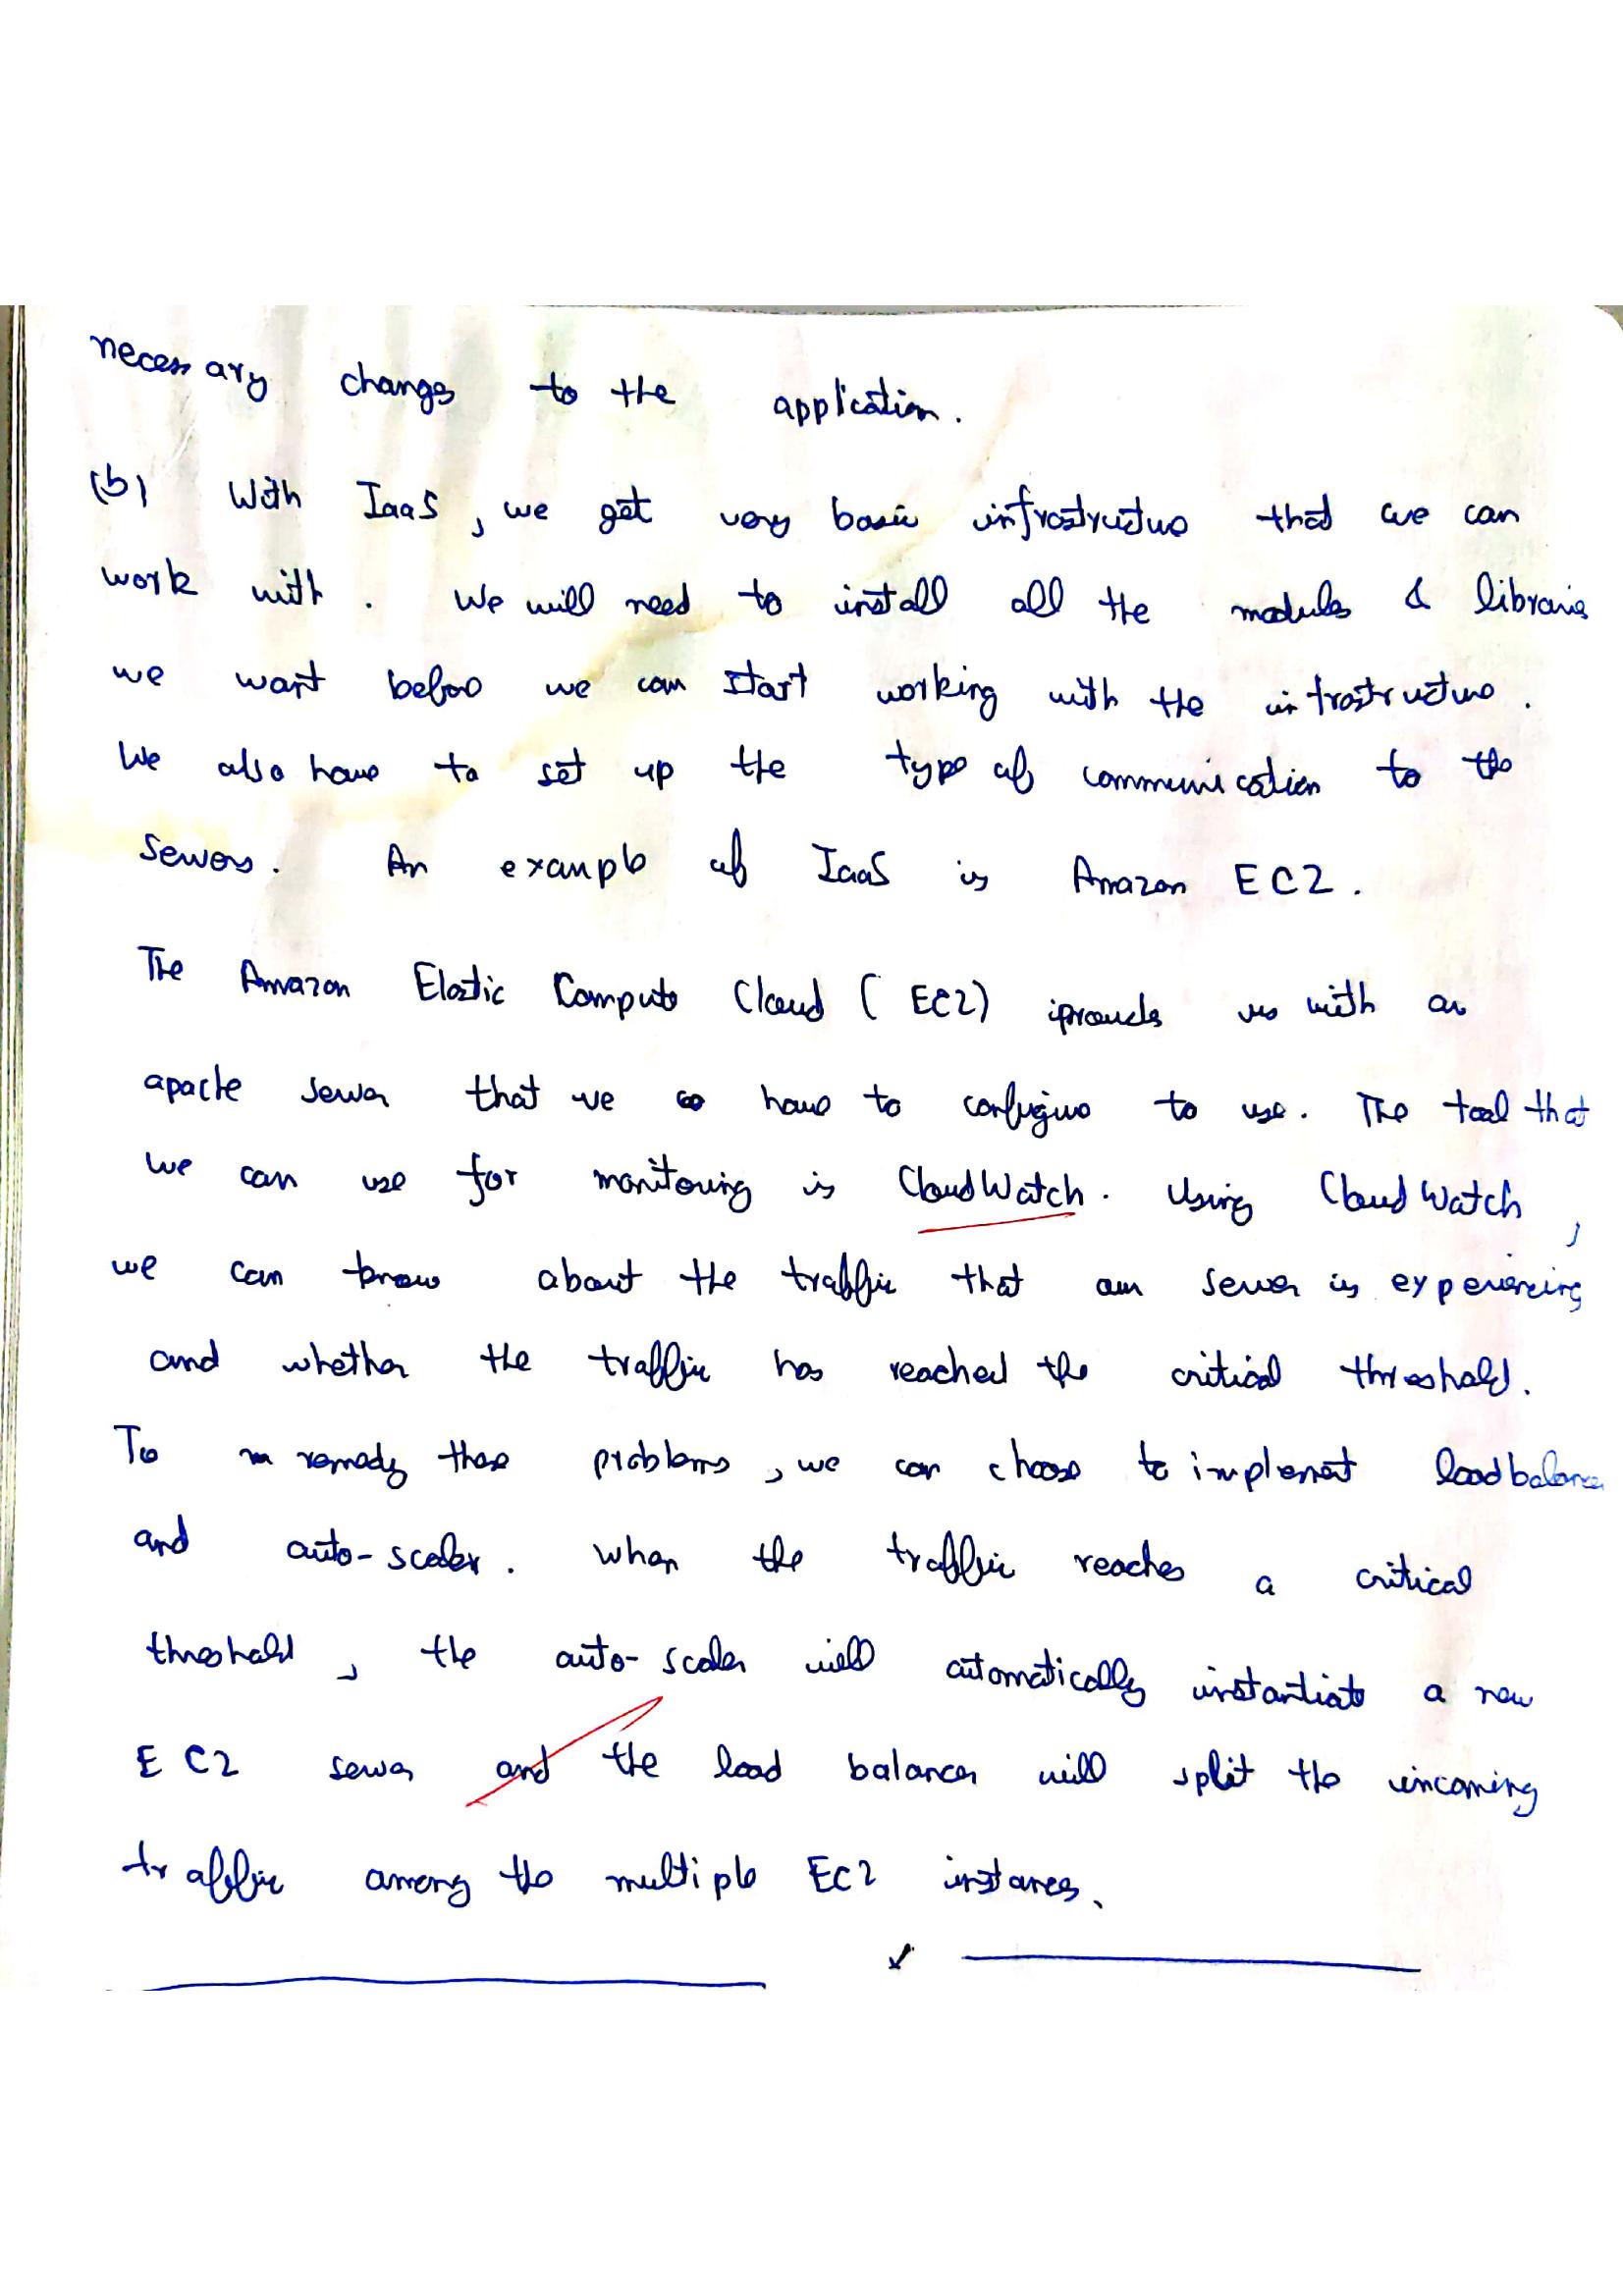 necessary changes to the application.
(b) With IaaS, we get very basic infrastructure that we can
work with. We will need to install all the modules & libraries
we want before we can start working with the infrastructure.
We also have to set up the type of communication to the
servers. An example of IaaS is Amazon EC2.
The Amazon Elastic Compute Cloud (EC2) provides us with an
apache server that we have to configure to use. The tool that
we can use for monitoring is CloudWatch. Using CloudWatch,
we can know about the traffic that our server is experiencing
and whether the traffic has reached the critical threshold.
To remedy these problems, we can choose to implement load balancer
and auto-scaler. When the traffic reaches a critical
threshold, the auto-scaler will automatically instantiate a new
EC2 server and the load balancer will split the incoming
traffic among the multiple EC2 instances.